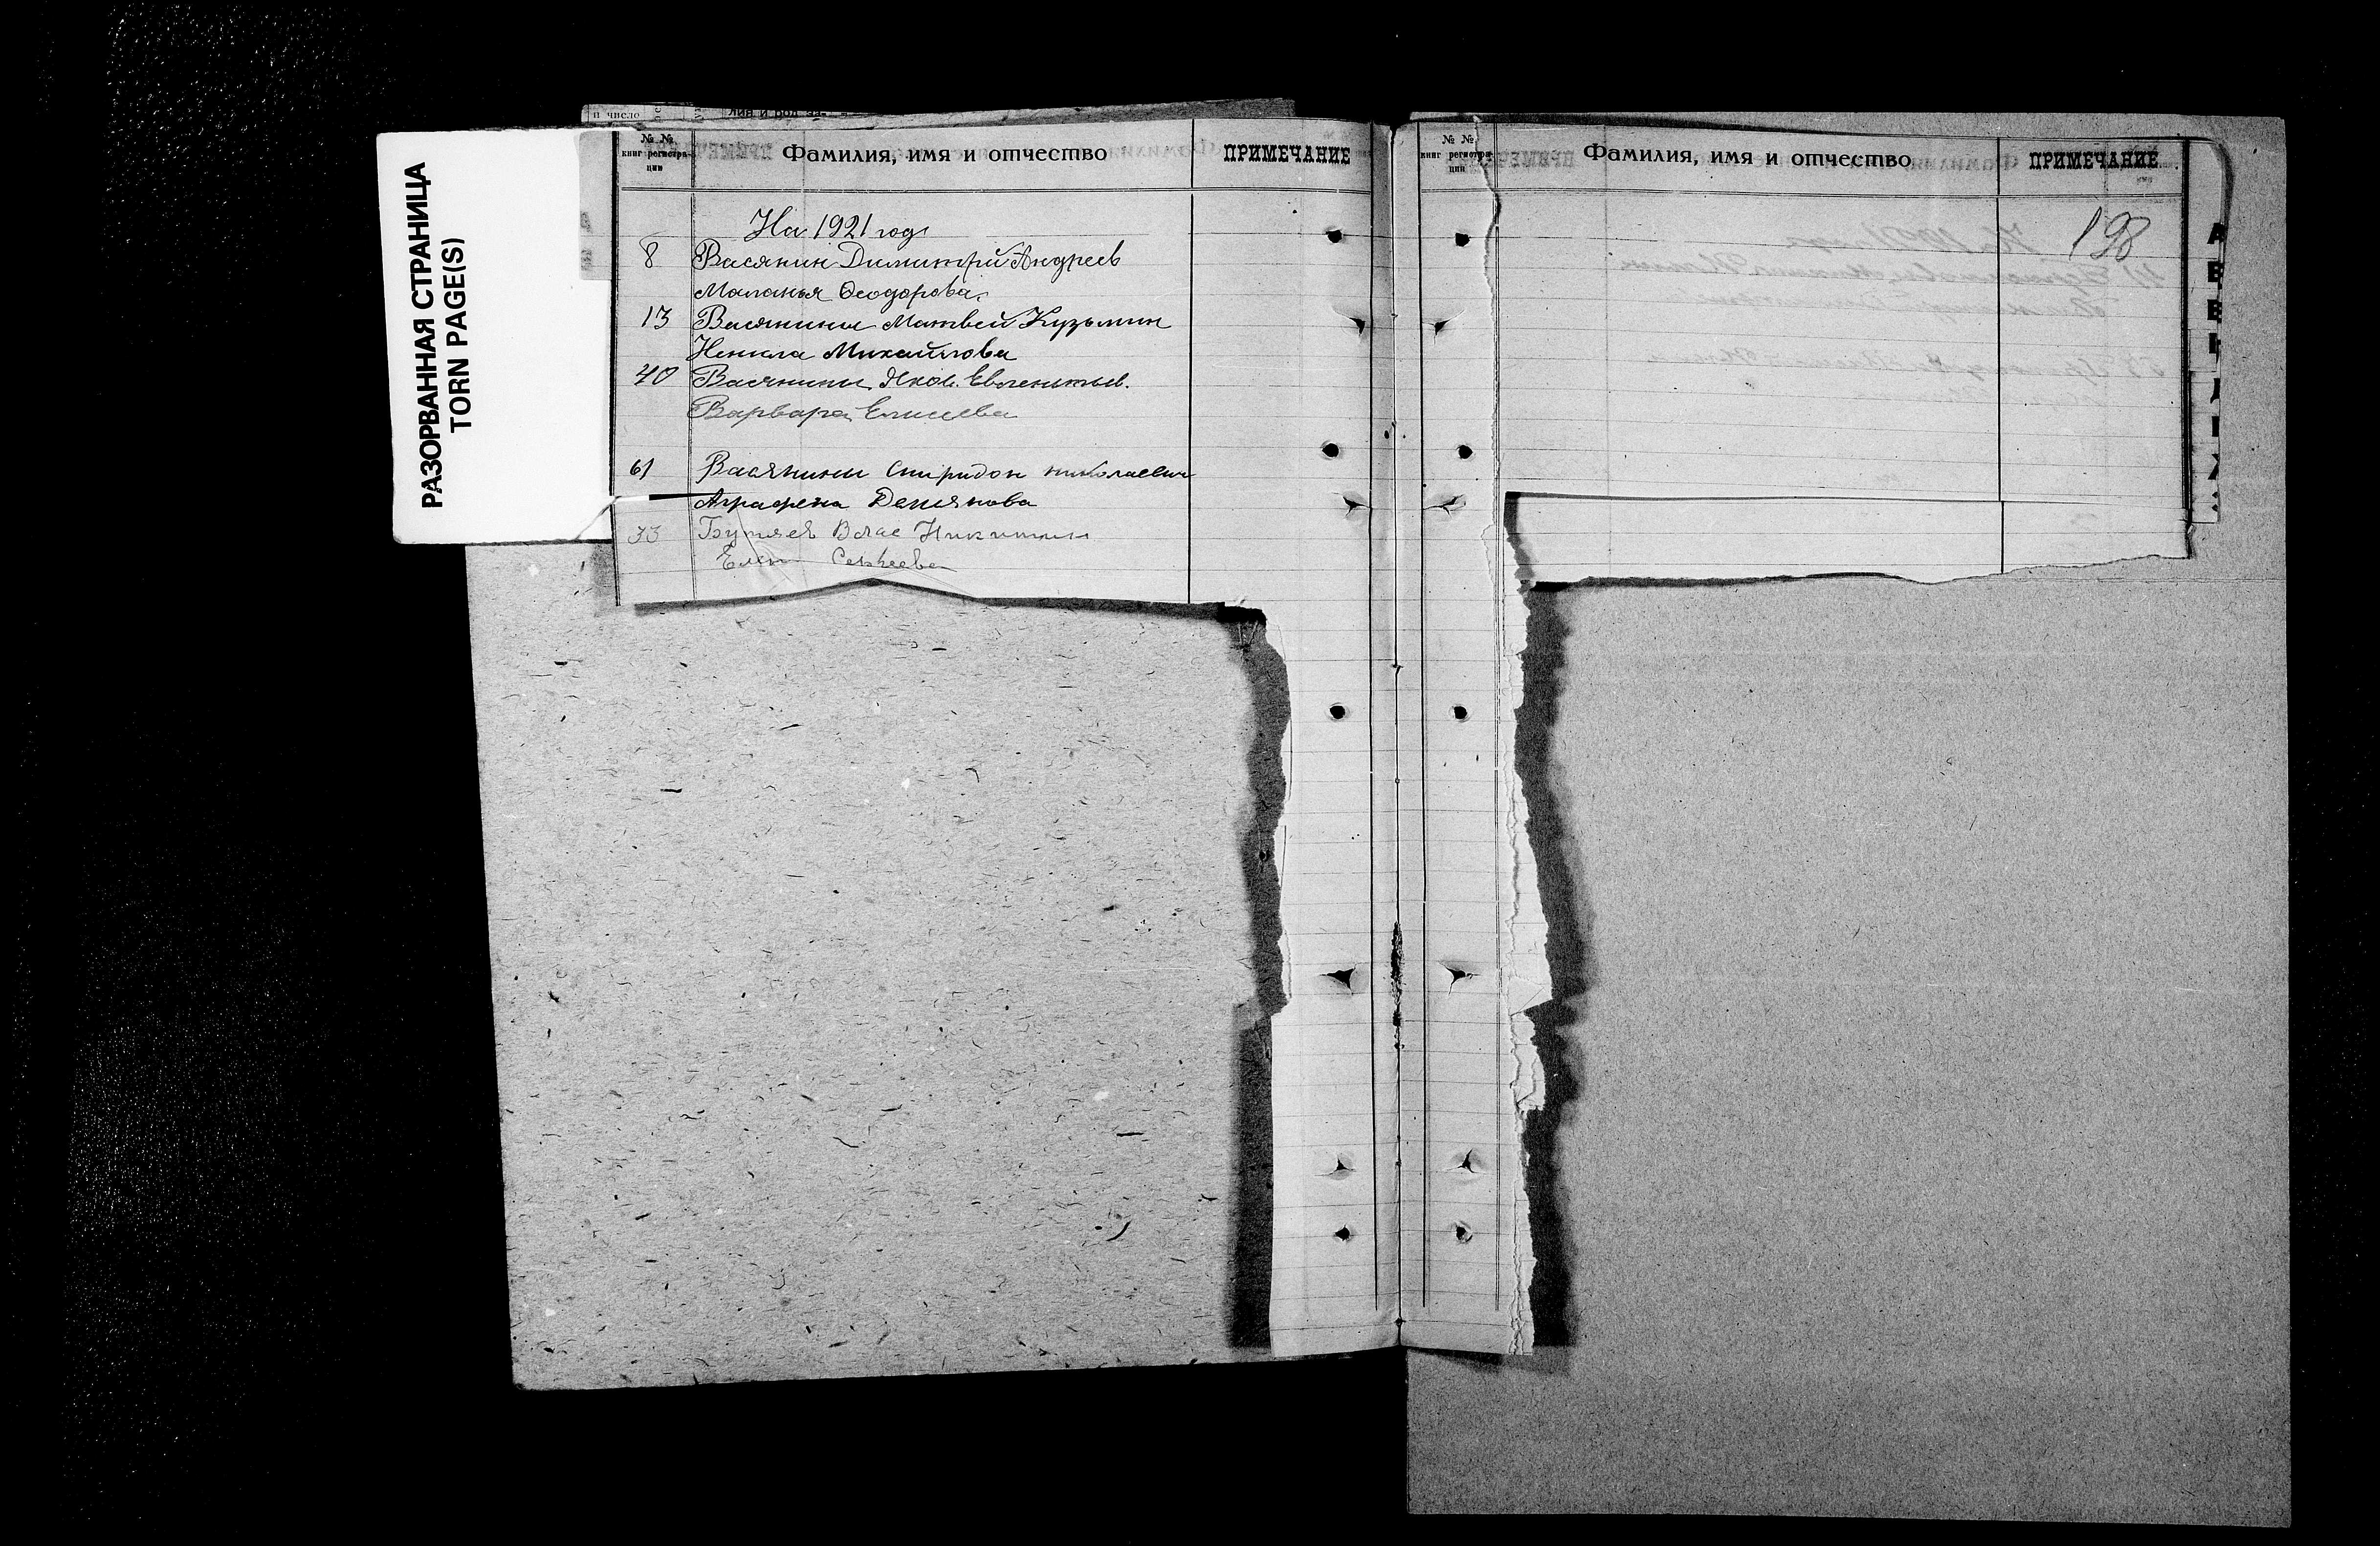 РАЗОРВАННАЯ СТРАНИЦА
TORN PAGE(S)
и число
№ № книг регистрации Фамилия, имя и отчество ПРИМЕЧАНИЕ
На 1921 годъ
8 Васянин Димитрий Андреев
Маланья Феодорова
13 Васянины Матвей Кузьмин
Ненила Михайлова
40 Васянины Яков
Варвара Елисеева
61 Васянины Спиридон николаевич
Аграфена Демянова
33 Влас Никитин
Сергеева
№ № книг регистрации Фамилия, имя и отчество ПРИМЕЧАНИЕ
198